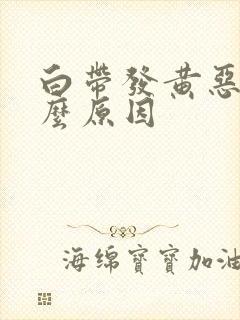 白帶發黃惡
麼原因
海绵寶寶加油